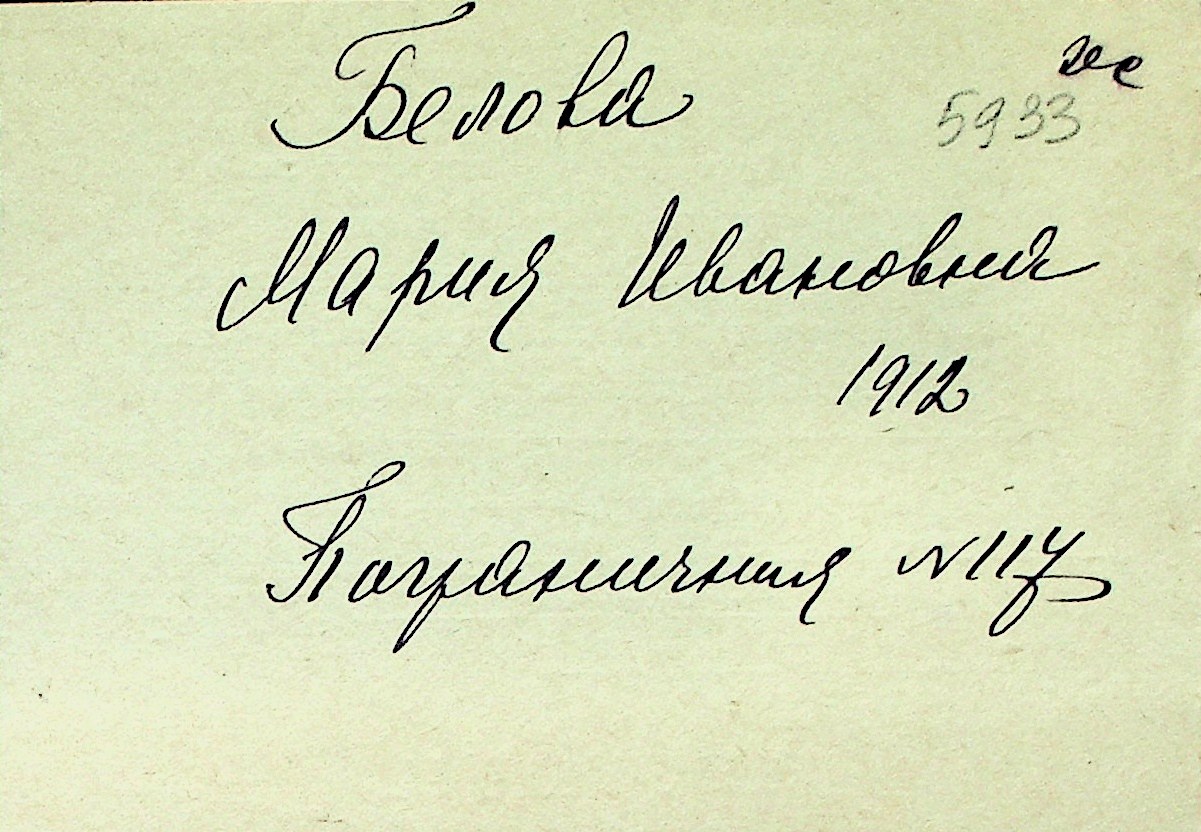 Белова
5933
Мария Ивановна
1912
Пограничная